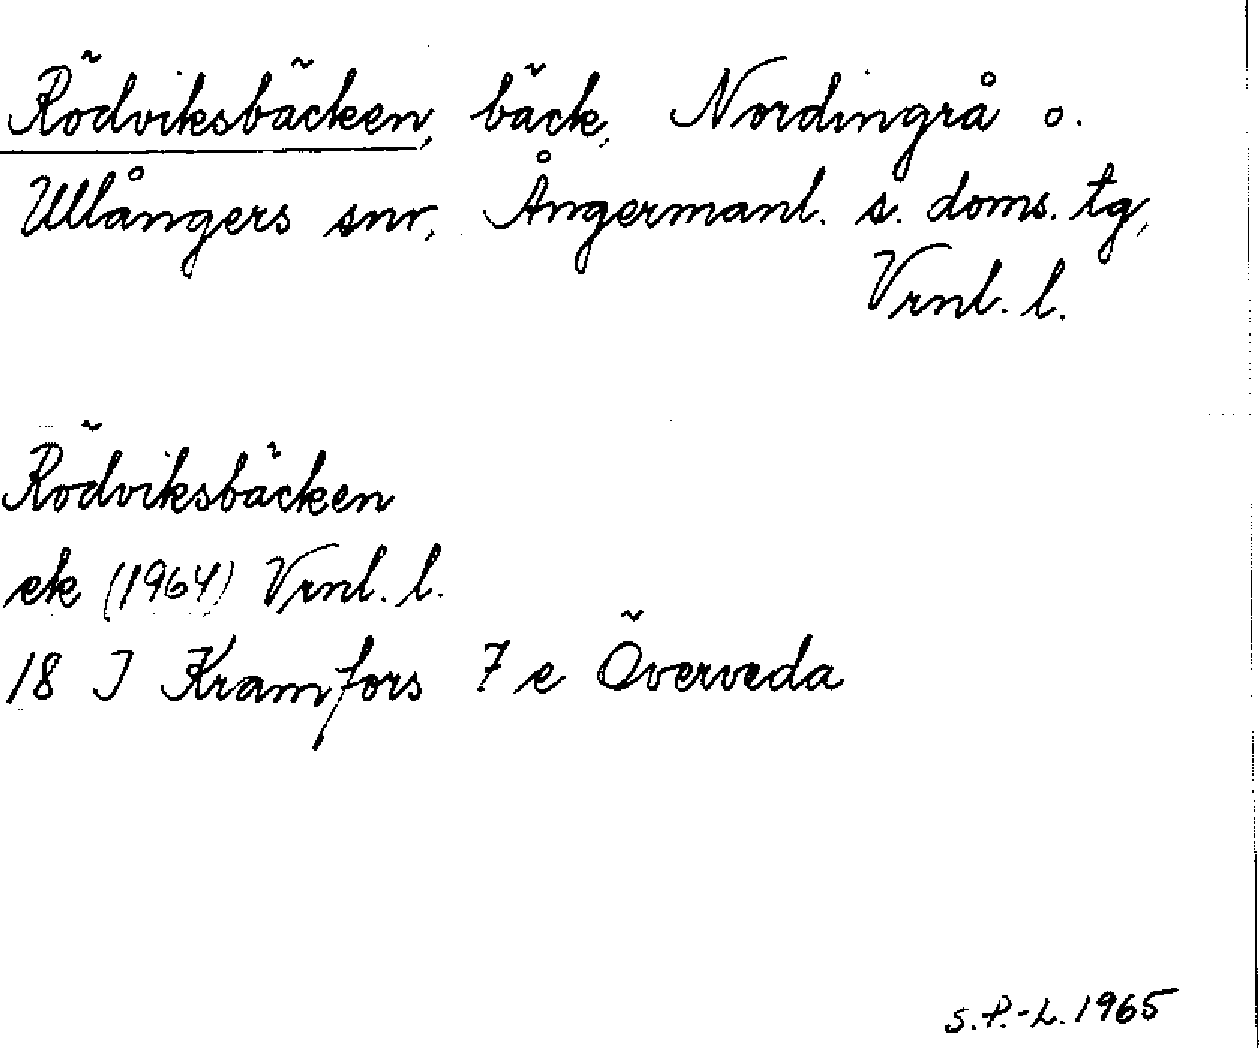 Rödviksbäcken, bäck, Nordingrå o.
Ullångers snr, Ångermanl. s. doms. tg,
Vrnl. l.
Rödviksbäcken
ek (1964) Vrnl. l.
18 J Kramfors 7 e Överveda
S.P.-L. 1965